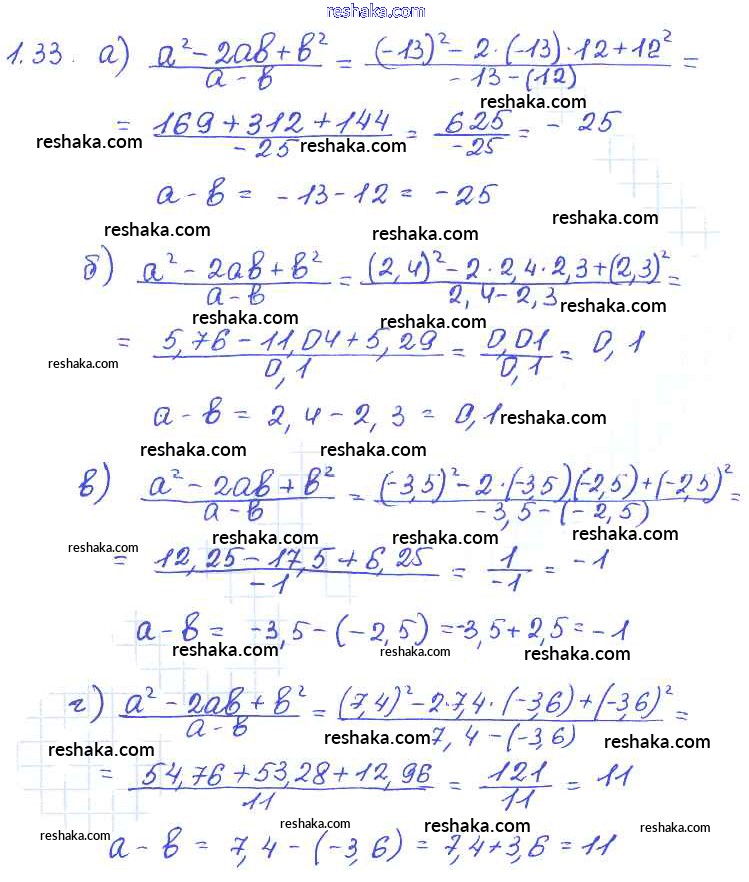 reshaka.com
1.33. а) (a² - 2ab + b²)/(a - b) = ((-13)² - 2·(-13)·12 + 12²)/(-13 - (12)) =
reshaka.com
= (169 + 312 + 144)/(-25) = 625/(-25) = - 25
reshaka.com reshaka.com reshaka.com
a - b = - 13 - 12 = - 25
reshaka.com reshaka.com reshaka.com
б) (a² - 2ab + b²)/(a - b) = ((2,4)² - 2·2,4·2,3 + (2,3)²)/(2,4 - 2,3) =
reshaka.com reshaka.com reshaka.com
= (5,76 - 11,04 + 5,29)/0,1 = 0,01/0,1 = 0,1
reshaka.com
a - b = 2,4 - 2,3 = 0,1 reshaka.com
reshaka.com reshaka.com
в) (a² - 2ab + b²)/(a - b) = ((-3,5)² - 2·(-3,5)(-2,5) + (-2,5)²)/(-3,5 - (-2,5)) =
reshaka.com reshaka.com reshaka.com
= (12,25 - 17,5 + 6,25)/(-1) = 1/(-1) = -1
a - b = -3,5 - (-2,5) = -3,5 + 2,5 = -1
reshaka.com reshaka.com reshaka.com
г) (a² - 2ab + b²)/(a - b) = ((7,4)² - 2·7,4·(-3,6) + (-3,6)²)/(7,4 - (-3,6)) =
reshaka.com reshaka.com reshaka.com
= (54,76 + 53,28 + 12,96)/11 = 121/11 = 11
reshaka.com reshaka.com reshaka.com reshaka.com
a - b = 7,4 - (-3,6) = 7,4 + 3,6 = 11